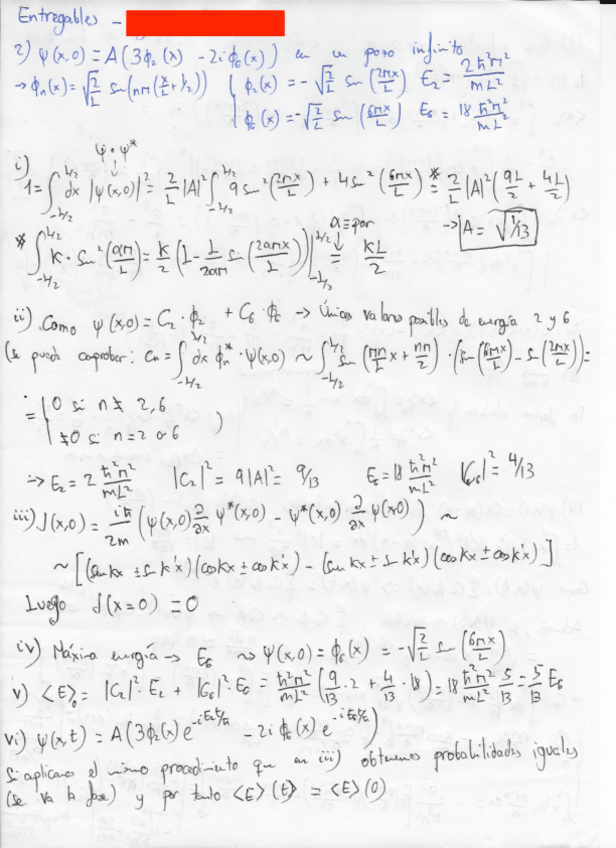 Entregables -
2) ψ(x,0) = A(3ϕ₂(x) - 2i ϕ₆(x)) en un pozo infinito
→ ϕₙ(x) = √(2/L) sen(nπ(x/L + 1/2)) { ϕ₂(x) = -√(2/L) sen(2πx/L) E₂ = 2ħ²π²/mL²
ϕ₆(x) = -√(2/L) sen(6πx/L) E₆ = 18 ħ²π²/mL²
ψ·ψ*
i) 1 = ∫_{-L/2}^{L/2} dx |ψ(x,0)|² = 2/L |A|² ∫_{-L/2}^{L/2} 9 sen²(2πx/L) + 4 sen²(6πx/L) =* 2/L |A|² (9L/2 + 4L/2)
→ A = √(1/13)
* ∫_{-L/2}^{L/2} K · sen²(aπ/L) = K/2 (L - L/2aπ sen(2aπx/L)) |_{-L/2}^{L/2} = KL/2
a ≡ par
ii) Como ψ(x,0) = C₂·ϕ₂ + C₆·ϕ₆ → Únicos valores posibles de energía 2 y 6
(se puede comprobar: Cₙ = ∫_{-L/2}^{L/2} dx ϕₙ* · ψ(x,0) ~ ∫_{-L/2}^{L/2} sen(πn/L x + nπ/2) · (sen(6πx/L) - sen(2πx/L)) =
= { 0 si n ≠ 2,6
≠0 si n = 2 o 6 )
→ E₂ = 2 ħ²π²/mL² |C₂|² = 9|A|² = 9/13 E₆ = 18 ħ²π²/mL² |C₆|² = 4/13
iii) J(x,0) = iħ/2m (ψ(x,0) ∂/∂x ψ*(x,0) - ψ*(x,0) ∂/∂x ψ(x,0)) ~
~ [(sen kx ± sen k'x)(cos kx ± cos k'x) - (sen kx ± sen k'x)(cos kx ± cos k'x)]
Luego J(x=0) = 0
iv) Máxima energía → E₆ ⇝ ψ(x,0) = ϕ₆(x) = -√(2/L) sen(6πx/L)
v) <E>₀ = |C₂|²·E₂ + |C₆|²·E₆ = ħ²π²/mL² (9/13·2 + 4/13·18) = 18 ħ²π²/mL² 5/13 = 5/13 E₆
vi) ψ(x,t) = A(3ϕ₂(x) e^{-iE₂t/ħ} - 2i ϕ₆(x) e^{-iE₆t/ħ})
Si aplicamos el mismo procedimiento que en iii) obtenemos probabilidades iguales
(se va la fase) y por tanto <E>(t) = <E>(0)